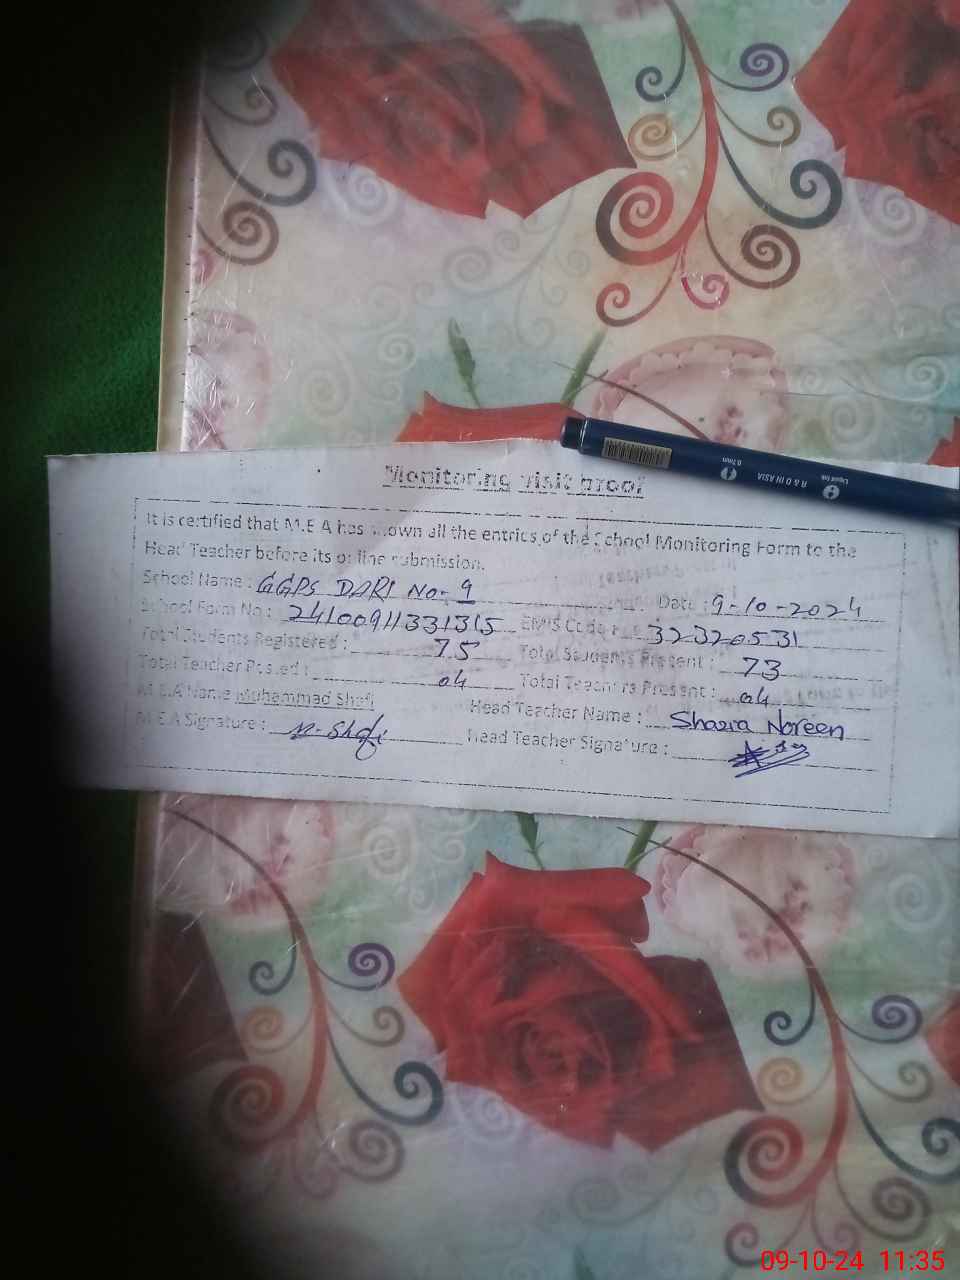 Monitoring Visit Proof
It is certified that M.E A has shown all the entries of the School Monitoring Form to the
Head Teacher before its online submission.
School Name : GGPS DARI No- 9 Date : 9-10-2024
School Form No : 24100911331315 EMIS Code : 32320531
Total Students Registered : 75 Total Students Present : 73
Total Teacher Posted : 04 Total Teachers Present : 04
M.E.A Name Muhammad Shafi Head Teacher Name : Shazia Noreen
M.E.A Signature : M-Shafi Head Teacher Signature :
0.7mm
R & D IN ASIA
Liquid Ink
09-10-24 11:35